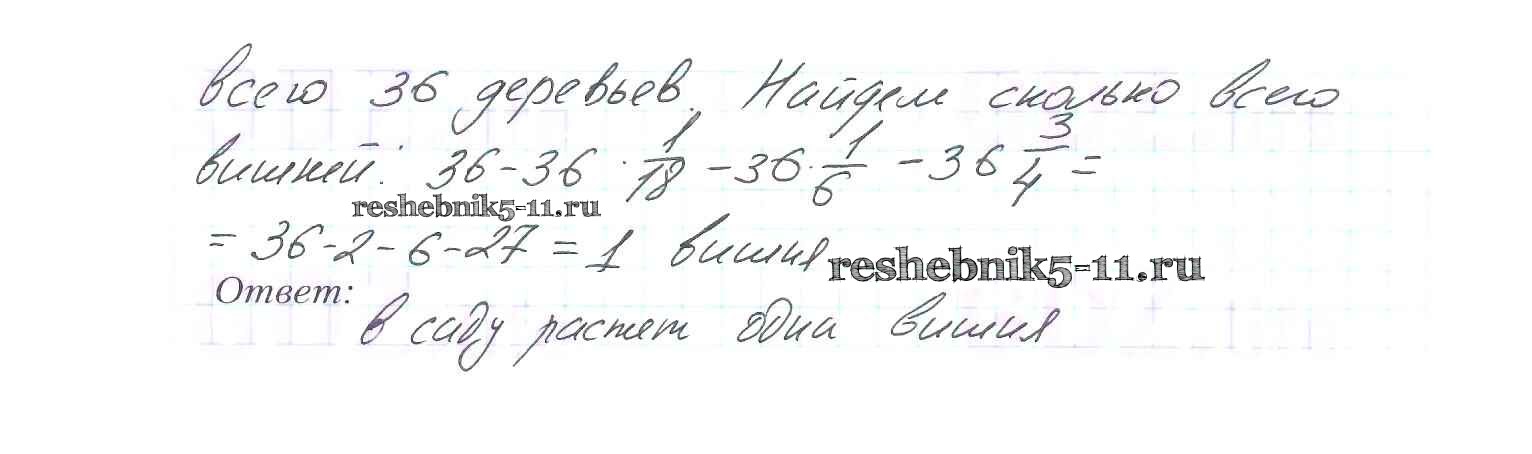 всего 36 деревьев. Найдем сколько всего
вишней: 36-36 · 1/18 - 36 · 1/6 - 36 3/4 =
reshebnik5-11.ru
= 36-2-6-27 = 1 вишня reshebnik5-11.ru
Ответ:
в саду растет одна вишня